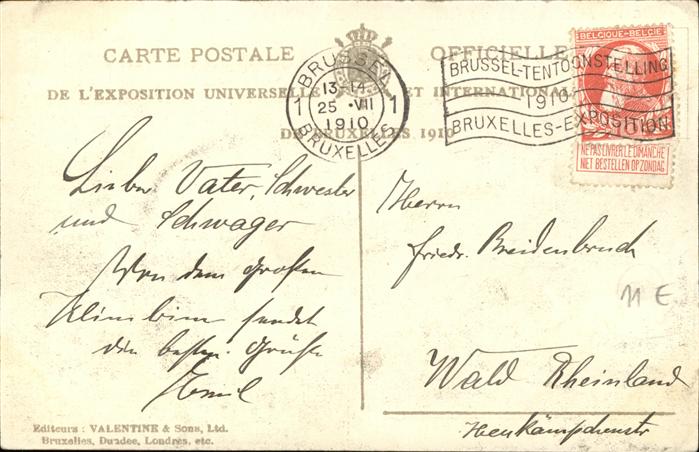 CARTE POSTALE OFFICIELLE
DE L'EXPOSITION UNIVERSELLE ET INTERNATIONALE
DE BRUXELLES 1910
BRUSSEL
13-14
1 25 · VII 1
1910
BRUXELLES
BRUSSEL-TENTOONSTELLING
1910
BRUXELLES-EXPOSITION
BELGIQUE-BELGIË
NE PAS LIVRER LE DIMANCHE
NIET BESTELLEN OP ZONDAG
Lieber Vater, Schwester
und Schwager
Von dem großen
Klimbim sendet
die besten Grüße
Emil
Herrn
Friedr. Breidenbruch
Wald Rheinland
11 E
Editeurs: VALENTINE & Sons, Ltd.
Bruxelles, Dundee, Londres, etc.